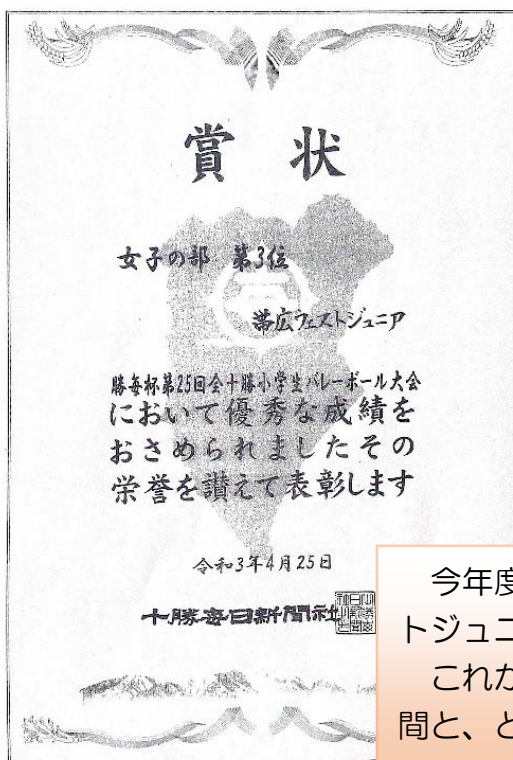 賞状
女子の部 第3位
帯広フェストジュニア
勝毎杯第25回全十勝小学生バレーボール大会
において優秀な成績を
おさめられましたその
栄誉を讃えて表彰します
令和3年4月25日
十勝毎日新聞社
今年度
トジュニ
これか
間と、と